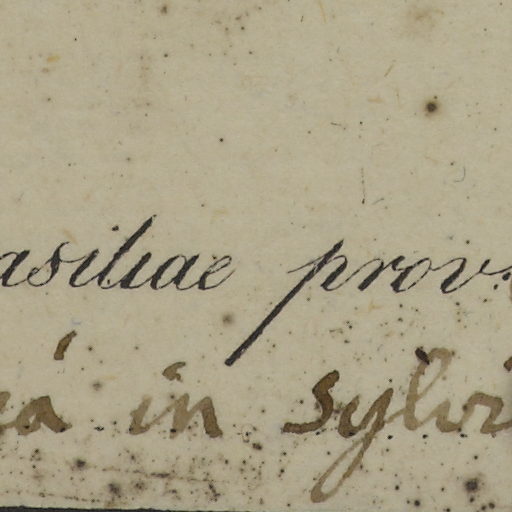 asiliae prov.
eá in sylvi